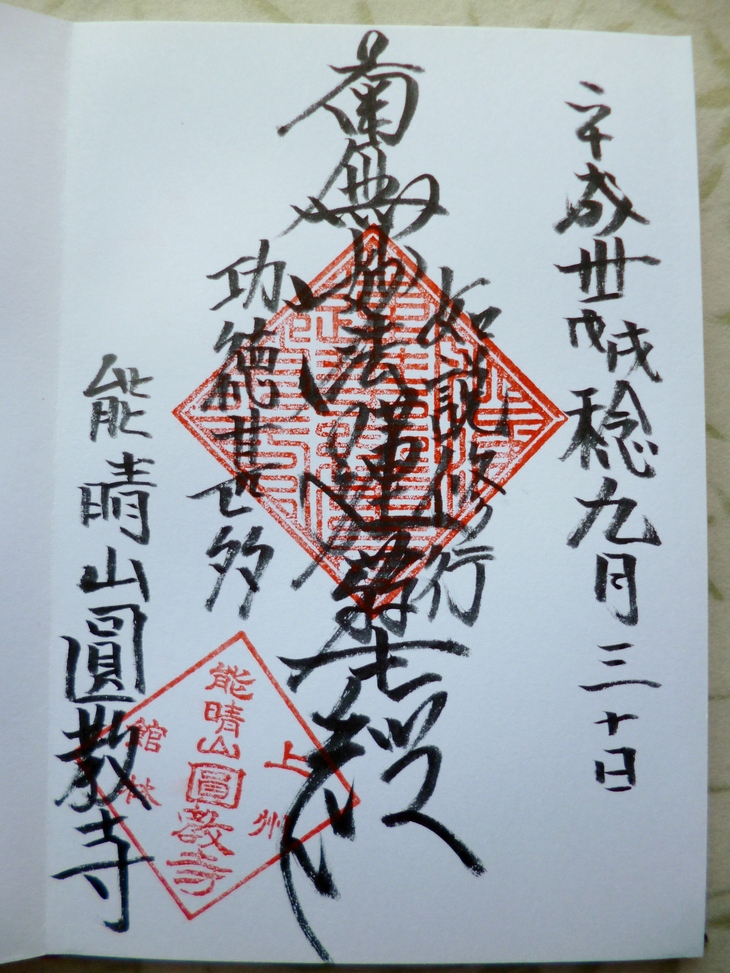 平成卅戊戌稔九月三十日
如説修行
南無妙法蓮華経
功徳甚多
能晴山圓教寺
上州
能晴山圓教寺
館林